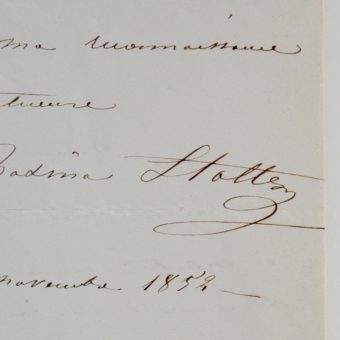 ma reconnaissance
tueuse
Stoltz
novembre 1852